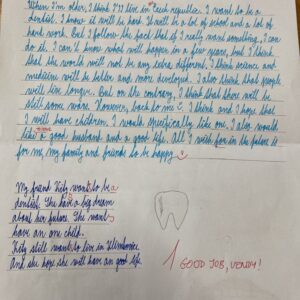 When I'm older, I think I'll live in Czech republic. I want to be a
dentist. I know it will be hard. It will be a lot of school and a lot of
hard work. But I follow the fact that if I really want something, I can
do it. I can't know what will happen in a few years, but I think
that the world will not be any extra different. I think science and
medicine will be better and more developed. I also think that people
will live longer. But on the contrary, I think that there will be
still some wars. However, back to me I think and I hope that
I will have children. I would specifically like one. I also would
like a good husband and a good life. All I wish for in the future is
for me, my family and friends to be happy.
My friend Kety want to be a
dentist. She have a big dream
about her future. She want
have an one child.
Kety still want to live in
And she hope she will have an good life.
1 GOOD JOB, VENDY!